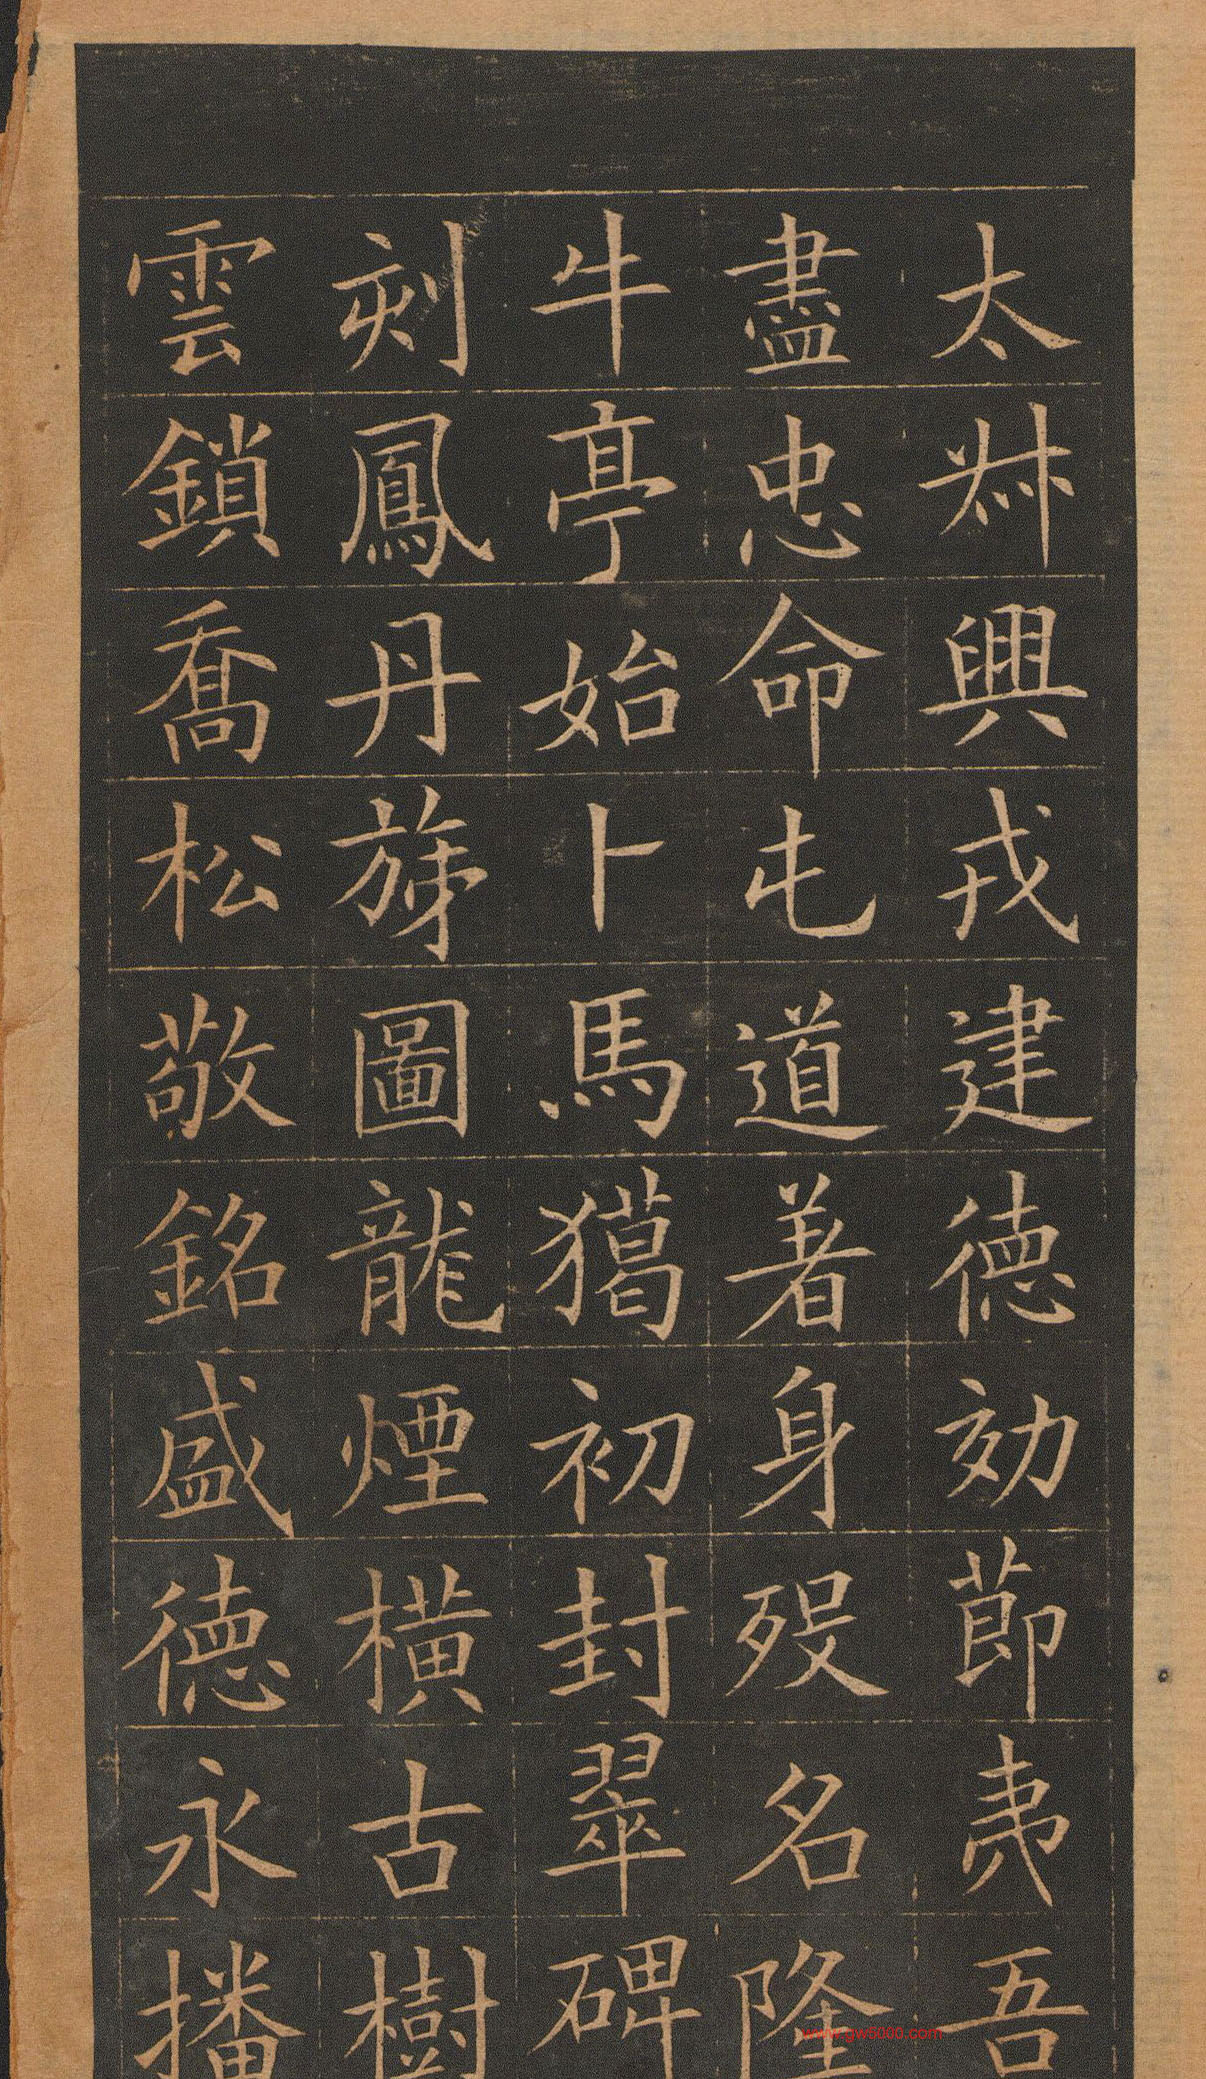 太叔興戎建德効節夷吾
盡忠命屯道着身歿名隆
牛亭始卜馬獦初封翠碑
刻鳳丹旐圖龍煙橫古樹
雲鎖喬松敬銘盛德永播
www.gw5000.com